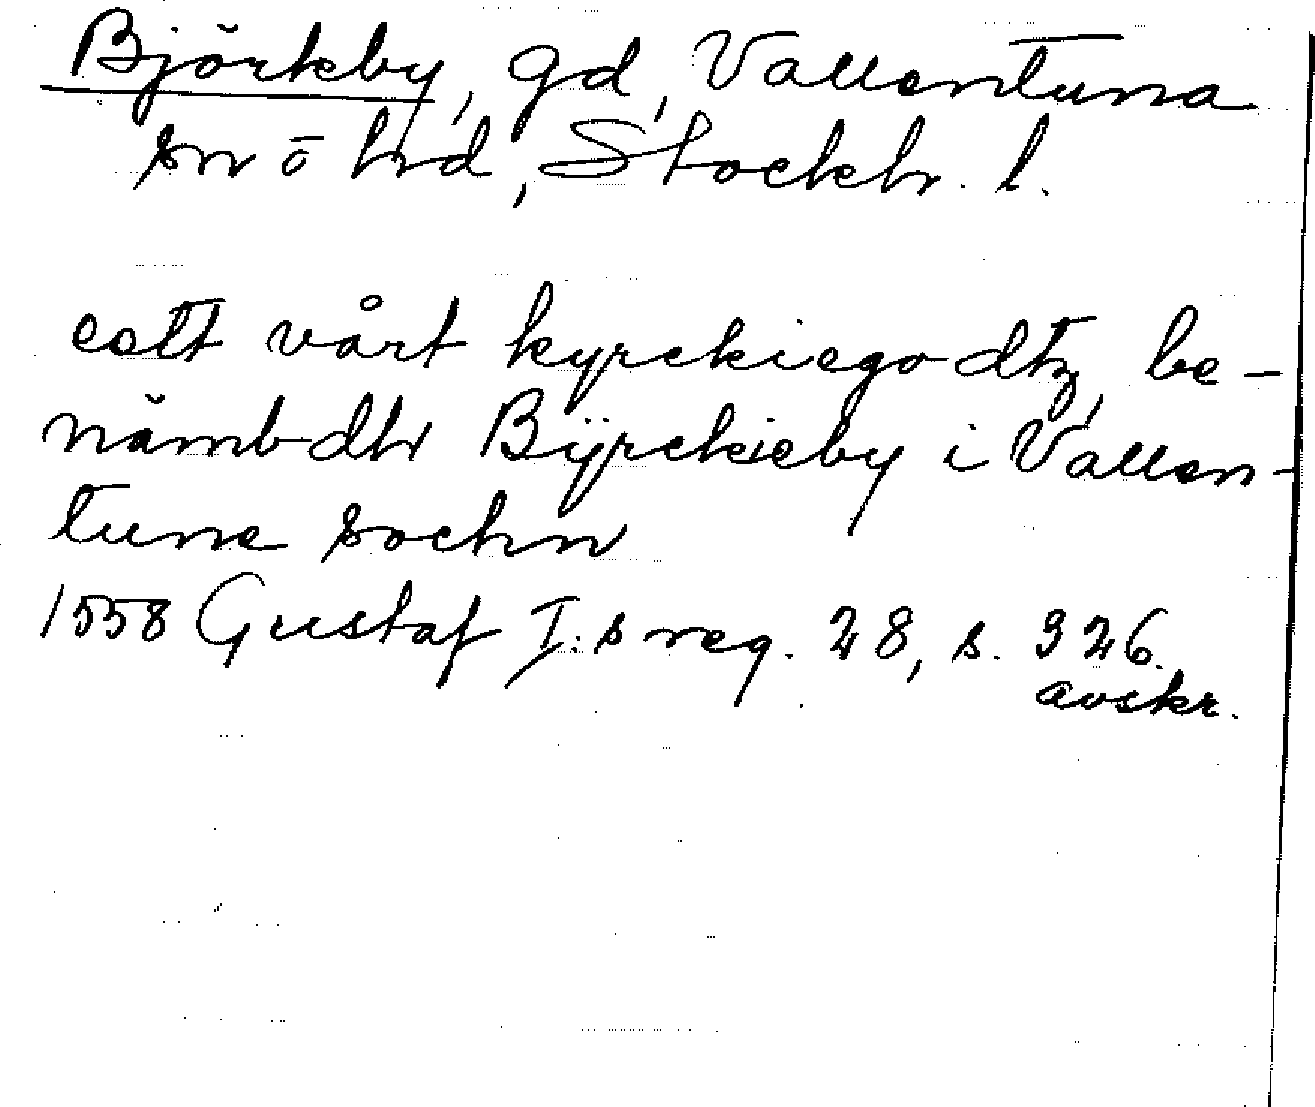 Björkby, gd, Vallentuna
sn o hd, Stockh. l.
eött vårt kyrckiegodtz, be-
nämbdtr Byrckieby i Vallen-
tune sochn
1558 Gustaf I:s reg. 28, s. 326.
avskr.